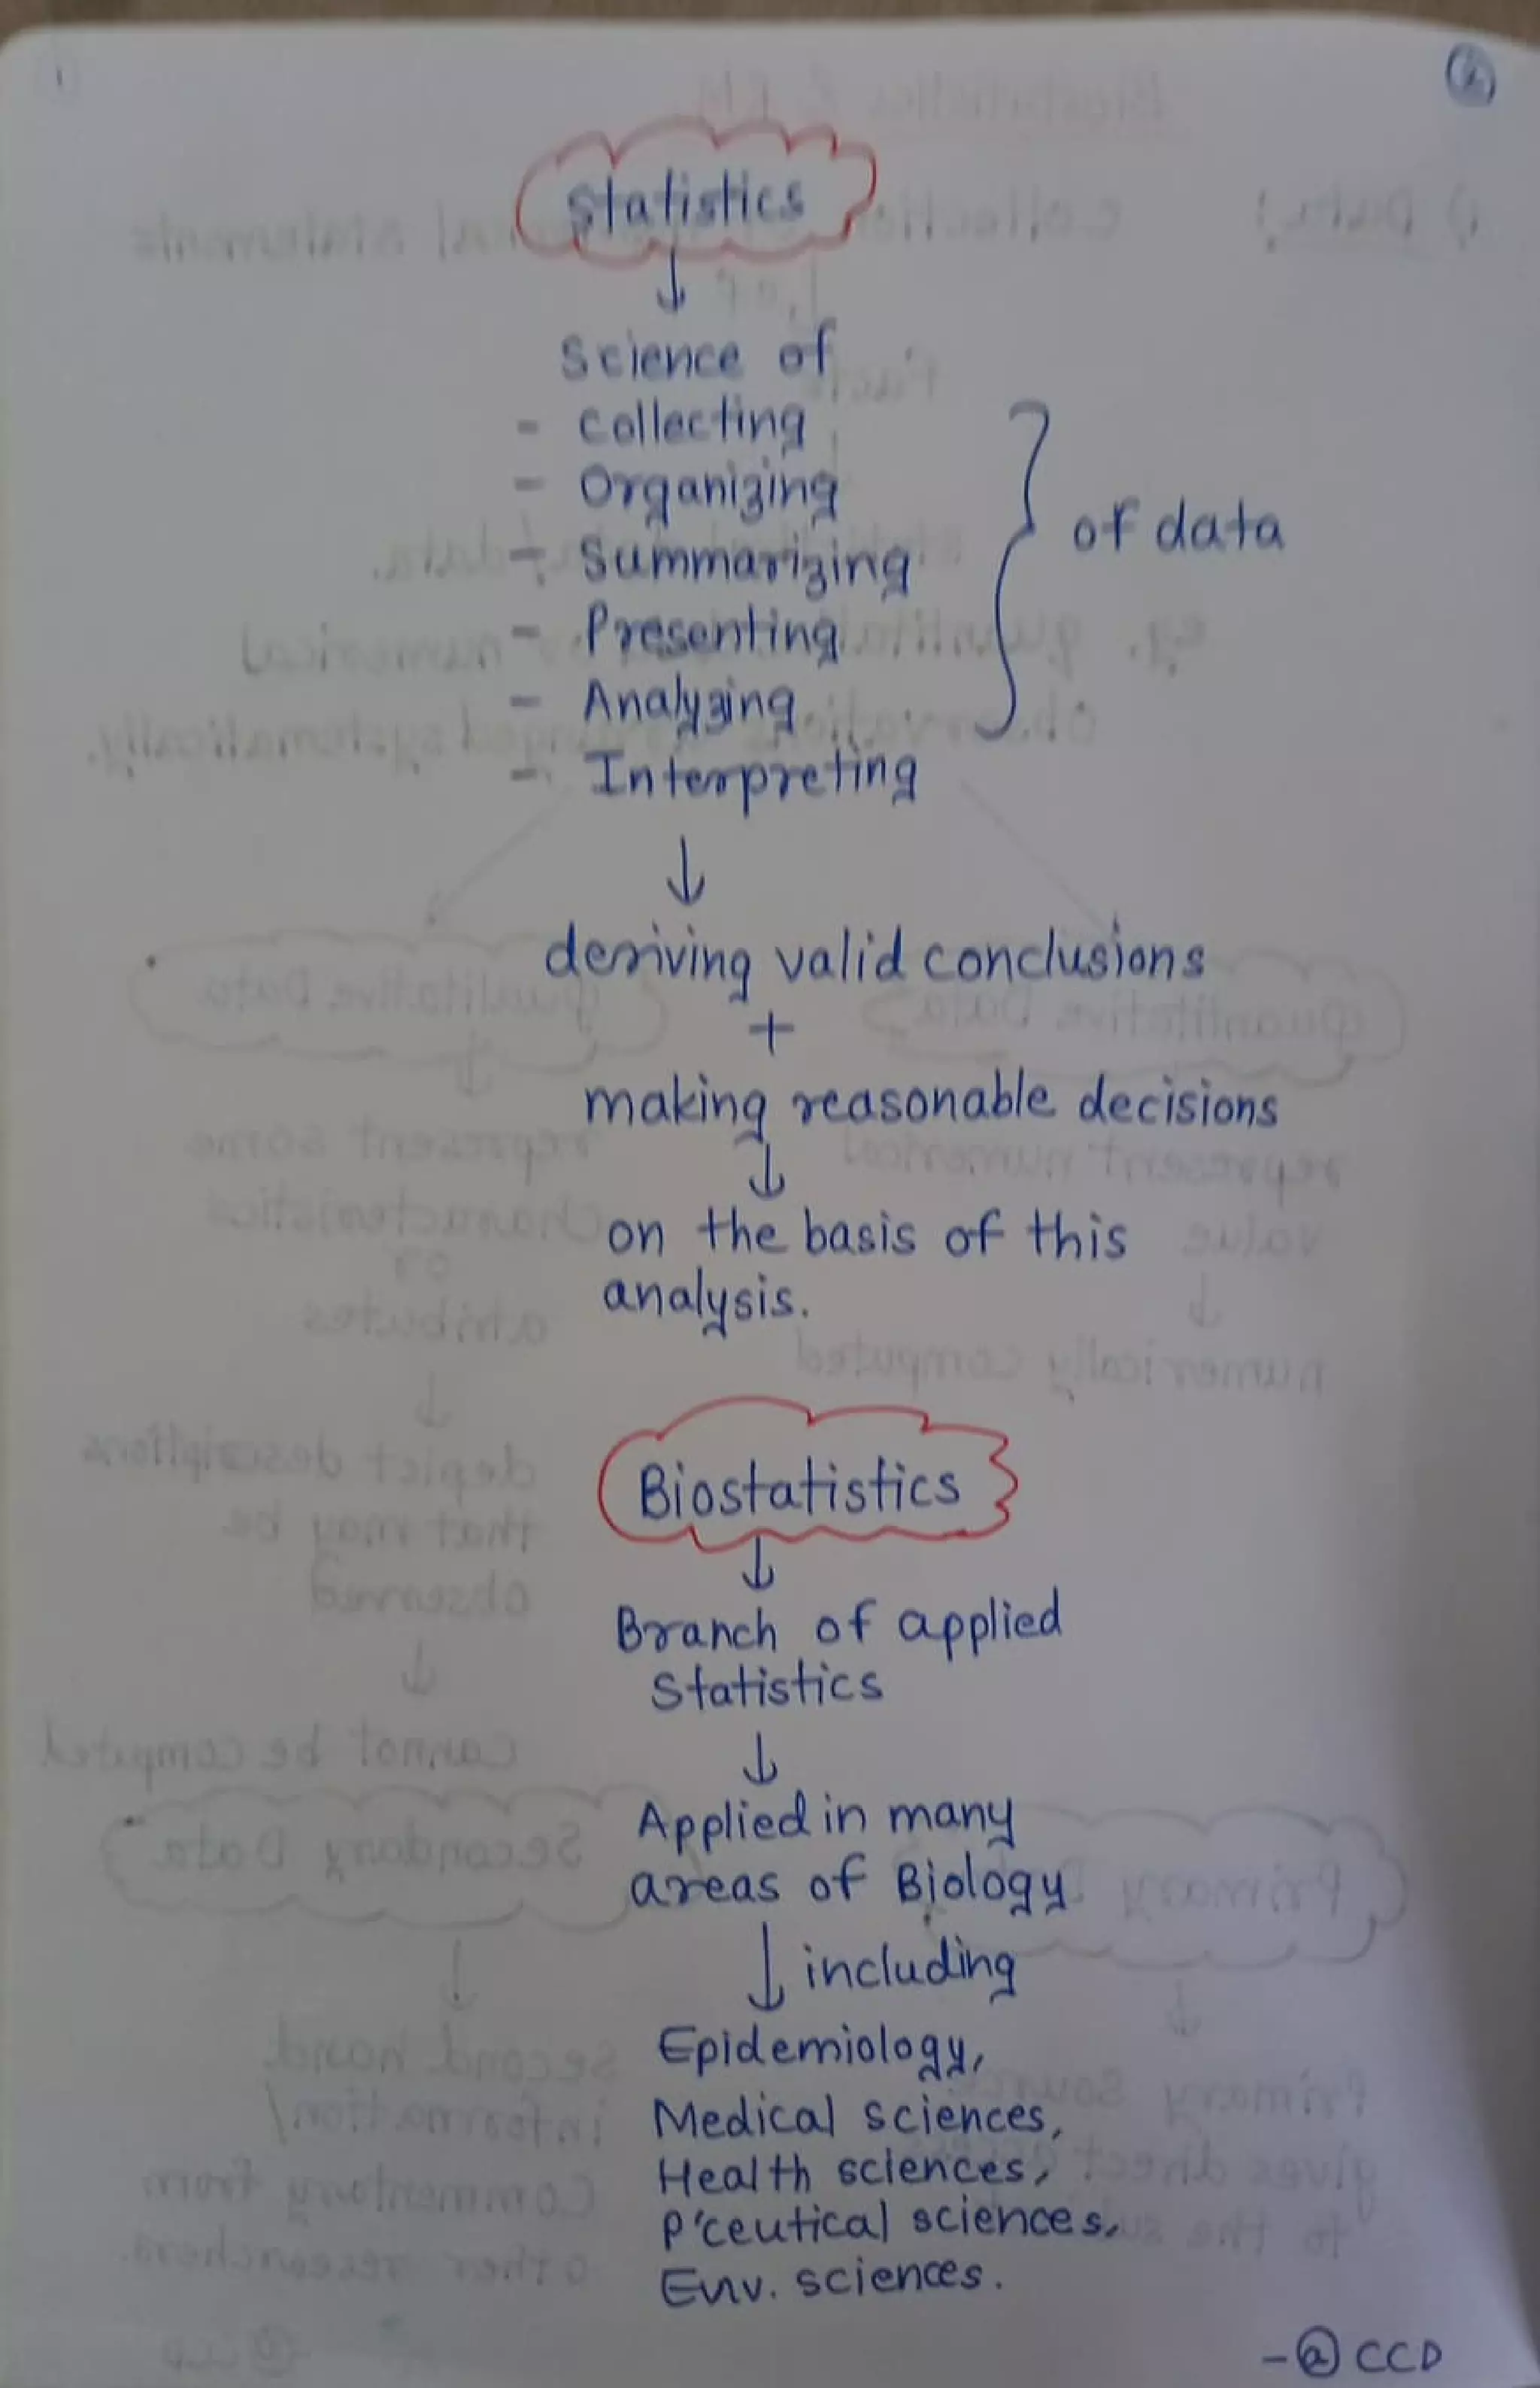 2
Statistics
↓
Science of
- Collecting
- Organizing
- Summarizing
- Presenting
- Analyzing
- Interpreting
} of data
↓
deriving valid conclusions
+
making reasonable decisions
↓
on the basis of this
analysis.
Biostatistics
↓
Branch of applied
Statistics
↓
Applied in many
areas of Biology
↓ including
Epidemiology,
Medical sciences,
Health sciences,
P'ceutical sciences,
Env. sciences.
-@ CCD